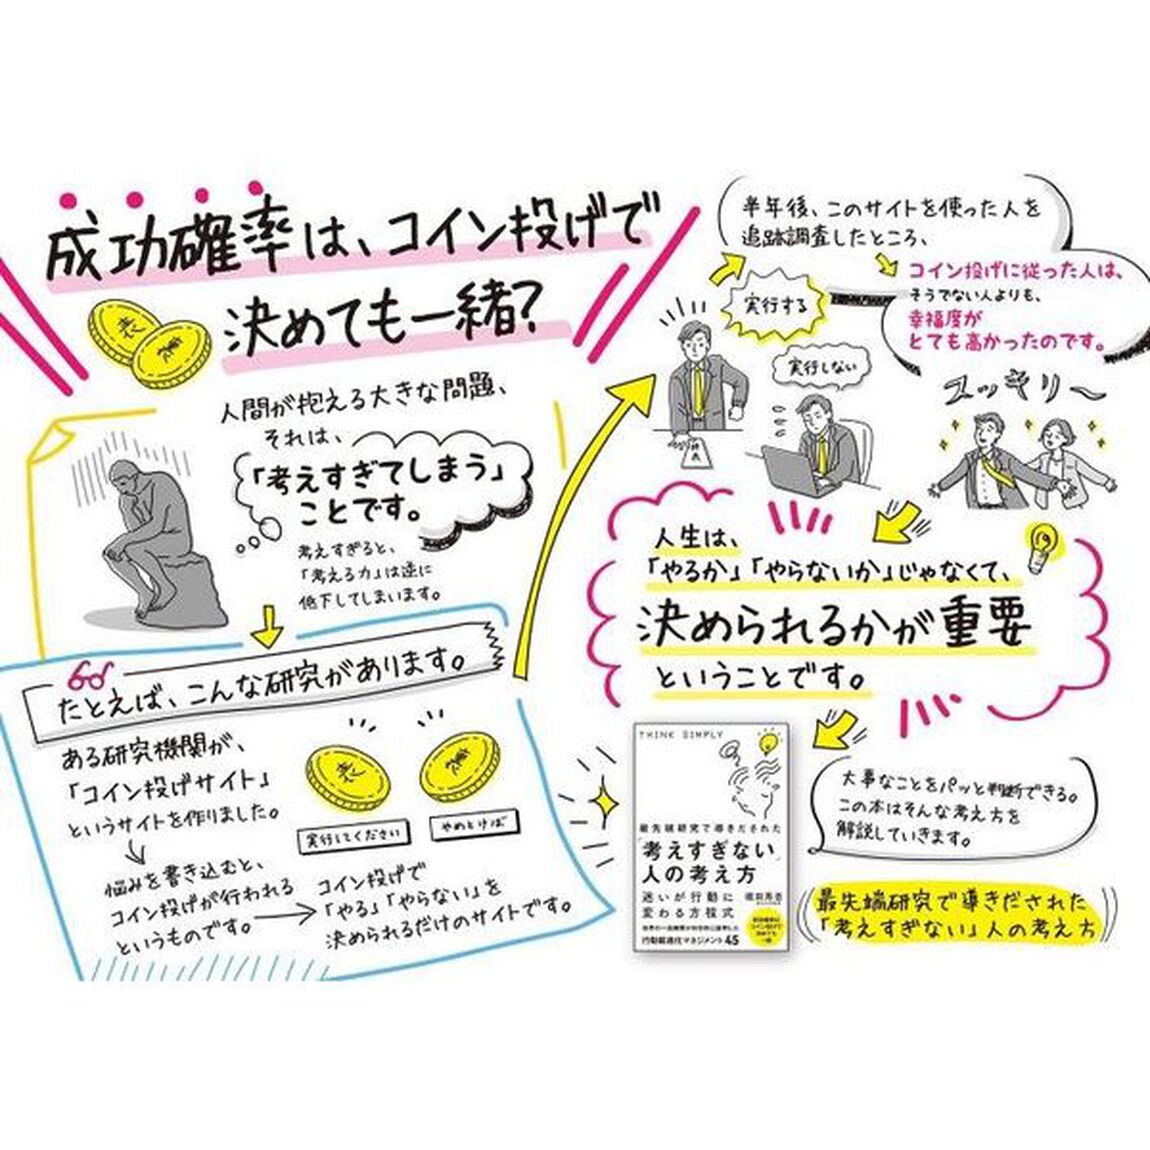 成功確率は、コイン投げで
決めても一緒?
表
裏
人間が抱える大きな問題、
それは、
「考えすぎてしまう」
ことです。
考えすぎると、
「考える力」は逆に
低下してしまいます。
たとえば、こんな研究があります。
ある研究機関が、
「コイン投げサイト」
というサイトを作りました。
悩みを書き込むと、
コイン投げが行われる
というものです。
表
裏
実行してください
やめとけば
コイン投げで
「やる」「やらない」を
決められるだけのサイトです。
半年後、このサイトを使った人を
追跡調査したところ、
コイン投げに従った人は、
そうでない人よりも、
幸福度が
とても高かったのです。
実行する
実行しない
辞表
スッキリ〜
人生は、
「やるか」「やらないか」じゃなくて、
決められるかが重要
ということです。
THINK SIMPLY
最先端研究で導きだされた
「考えすぎない」
人の考え方
迷いが行動に
変わる方程式
堀田秀吾
行動最適化マネジメント45
大事なことをパッと判断できる。
この本はそんな考え方を
解説していきます。
最先端研究で導きだされた
「考えすぎない」人の考え方